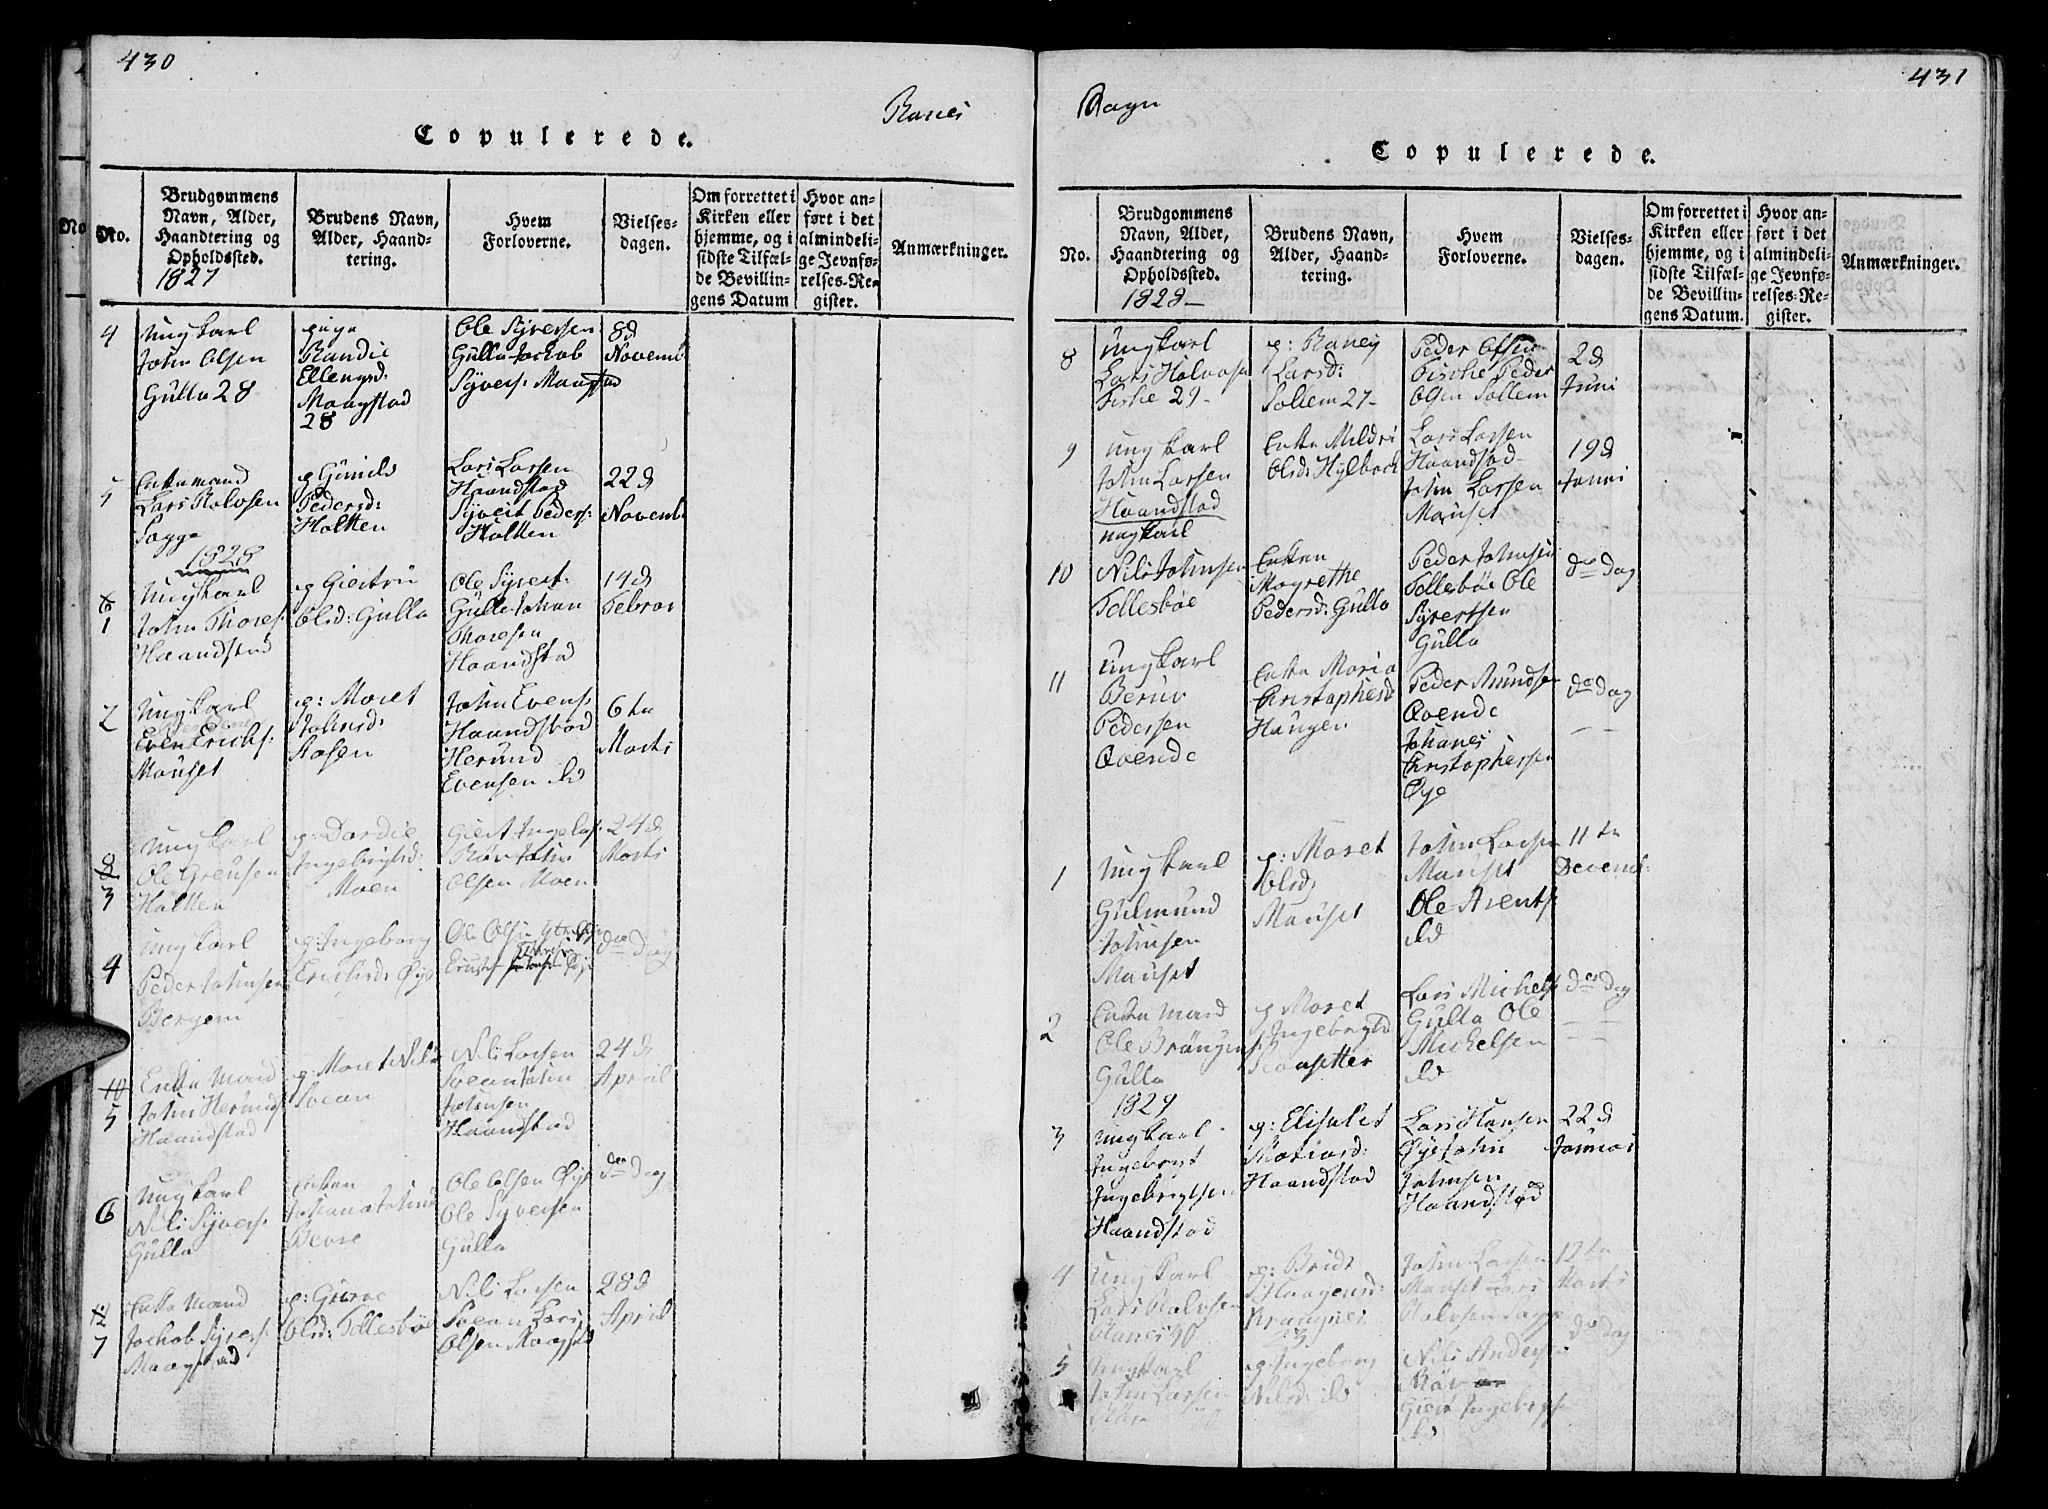 430
Ranes
Copulerede.
No.
Brudgommens
Navn, Alder,
Haandtering og
Opholdssted.
1827
Brudens Navn,
Alder, Haand-
tering.
Hvem
Forloverne.
Vielses-
dagen.
Om forrettet i
Kirken eller
hjemme, og i
sidste Tilfæl-
de Bevillin-
gens Datum
Hvor an-
ført i det
almindeli-
ge Jevnfø-
relses-Re-
gister.
Anmærkninger.
4
Ungkarl
John Olsen
Gulla 28
pige
Randie
Ellengsd:
Maagstad
28
Ole Syversen
Gulla Jachob
Syvers: Maagstad
8d
Novemb
5
Enkemand
Lars Rolvsen
Sogge
p Gunild
Pedersd:
Holten
Lars Larsen
Haandstad
Syvert Peders:
Holten
22d
Novemb
1828
1
Ungkarl
John Thores:
Haandstad
p Giertru
Olsd: Gulla
Ole Syvert:
Gulle Johan
Thoresen
Haandstad
14d
Febroar
2
Ungkarl
Even Erichs:
Mauset
p: Maret
Johnsd:
Aasen
John Evens:
Haandstad
Herund
Evensen ibd
6te
Marts
8
3
Ungkarl
Ole Greusen
Holten
p: Dordie
Ingebrigtsd:
Moen
Giert Ingebr:
Røv John
Olsen Moen
24d
Marts
4
Ungkarl
Peder Johnsen
Bergem
p: Ingeborg
Erichsd: Øye
Ole Olsen
do Dag
10
5
Enke Mand
John Herunds
Haandstad
p: Maret Nils
Svean
Nils Larsen
Svean John
Johnsen
Haandstad
24d
April
6
Ungkarl
Nils Syvers:
Gulla
Enken
Johana Johns
Bevre
Ole Olsen Øye
Ole Syversen
Gulla
den Dag
12
7
Enke Mand
Jachob Syvers:
Maagstad
p: Gurue
Olsd: Tellesbøe
Nils Larsen
Svean Lars
Olsen Maagstad
28d
April
431
Bagn
Copulerede.
No.
Brudgommens
Navn, Alder,
Haandtering og
Opholdssted.
1828
Brudens Navn,
Alder, Haand-
tering.
Hvem
Forloverne.
Vielses-
dagen.
Om forrettet i
Kirken eller
hjemme, og i
sidste Tilfæl-
de Bevillin-
gens Datum.
Hvor an-
ført i det
almindeli-
ge Jevnfø-
relses-Re-
gister.
Anmærkninger.
8
Ungkarl
Lars Halvorsen
Fiske 29
p: Raney
Larsd:
Solem 27
Peder Olsen
Fische Peder
Olsen Sollem
2d
Juni
9
Ungkarl
John Larsen
Haandstad
Enke Mildri
Olsd: Hylback
Lars Larsen
Haandstad
John Larsen
Mauset
19d
Junii
10
Ungkarl
Nils Johnsen
Tellesbøe
Enken
Magrethe
Pedersd: Gulla
Peder Johnsen
Tellesbøe Ole
Syvertsen
Gulla
do Dag
11
Ungkarl
Beruv
Pedersen
Qvende
Enke Maria
Christophersd
Haugen
Peder Amundsen
Qvende
Johanes
Christophersen
Øye
do Dag
1
Ungkarl
Gulmund
Johnsen
Mauset
p: Maret
Olsd
Mauset
John Larsen
Mauset
Ole Arents:
ibd
11te
Decemb:
2
Enke Mand
Ole Brøngers:
Gulla
p Maret
Ingebrigtsd
Roasetter
Lars Michels:
Gulla Ole
Michelsen
ibd
do Dag
1829
3
Ungkarl
Ingebrigt
Ingebrigtsen
Haandstad
p: Elisabet
Mariasd:
Haandstad
Lars Hansen
Øye John
Johnsen
Haandstad
22d
Januar
4
Ungkarl
Lars Halvorsen
Ranes 40
p: Bridt
Haagensd:
Krangnes
23
John Larsen
Mauset Lars
Rolvsen Sogge
12te
Marts
5
Ungkarl
John Larsen
Røv
p: Ingeborg
Nilsd: ib
Nils Andersen
Røv
Giert Ingebrigts
ibd
do Dag